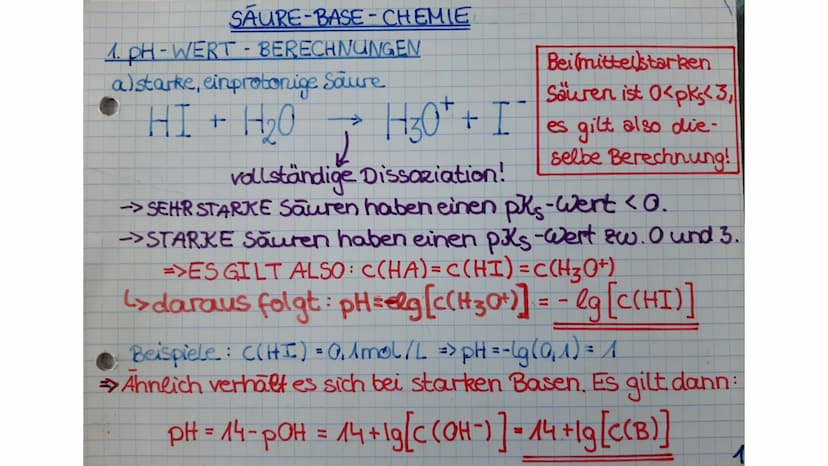 SÄURE-BASE-CHEMIE
1. pH-WERT-BERECHNUNGEN
a) starke, einprotonige Säure
HI + H₂O → H₃O⁺ + I⁻
vollständige Dissoziation!
Bei (mittel)starken
Säuren ist 0<pKs<3,
es gilt also die-
selbe Berechnung!
→SEHR STARKE Säuren haben einen pKs-Wert < 0.
→STARKE Säuren haben einen pKs-Wert zw. 0 und 3.
⇒ES GILT ALSO: C(HA)=C(HI)=C(H₃O⁺)
↳daraus folgt: pH=-lg[C(H₃O⁺)] = -lg[C(HI)]
Beispiele: C(HI)=0,1mol/L ⇒pH=-lg(0,1)=1
⇒Ähnlich verhält es sich bei starken Basen. Es gilt dann:
pH = 14-pOH = 14+lg[C(OH⁻)] = 14+lg[C(B)]
1